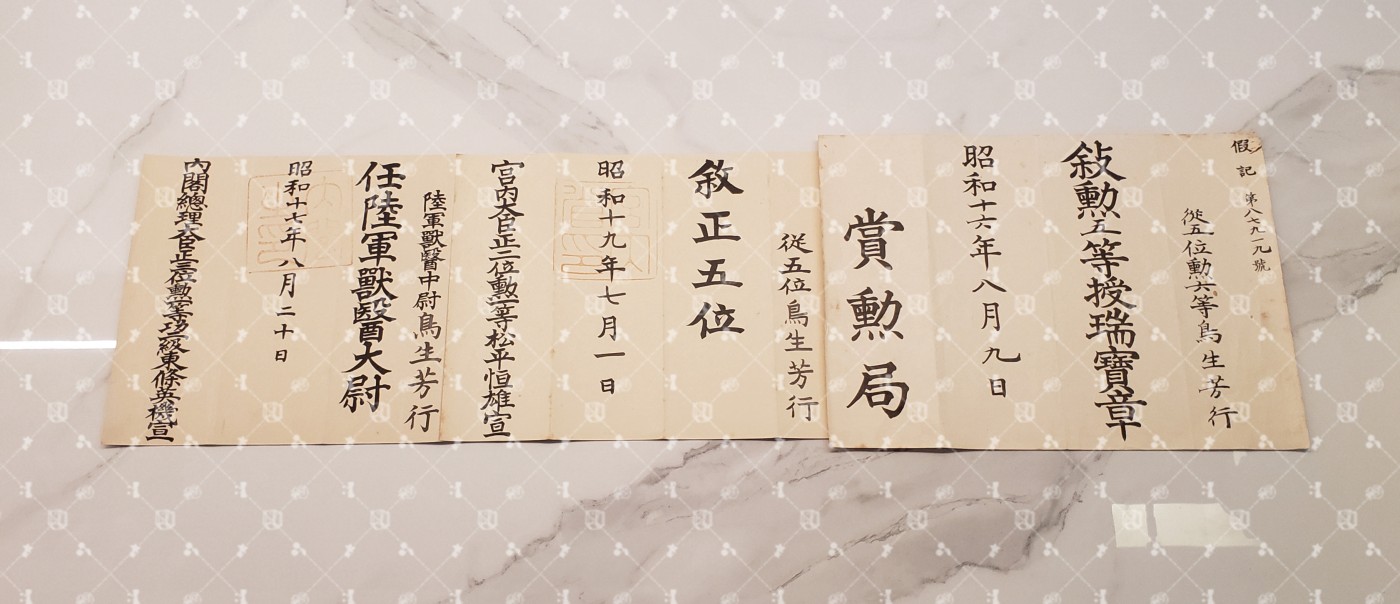 假記 第八七九一九號
從五位勲六等鳥生芳行
敍勲五等授瑞寶章
昭和十六年八月九日
賞勲局
從五位鳥生芳行
敘正五位
昭和十九年七月一日
宮内大臣正二位勲一等松平恒雄宣
陸軍獸醫中尉鳥生芳行
任陸軍獸醫大尉
昭和十七年八月二十日
內閣總理大臣正三位勲一等功二級東條英機宣